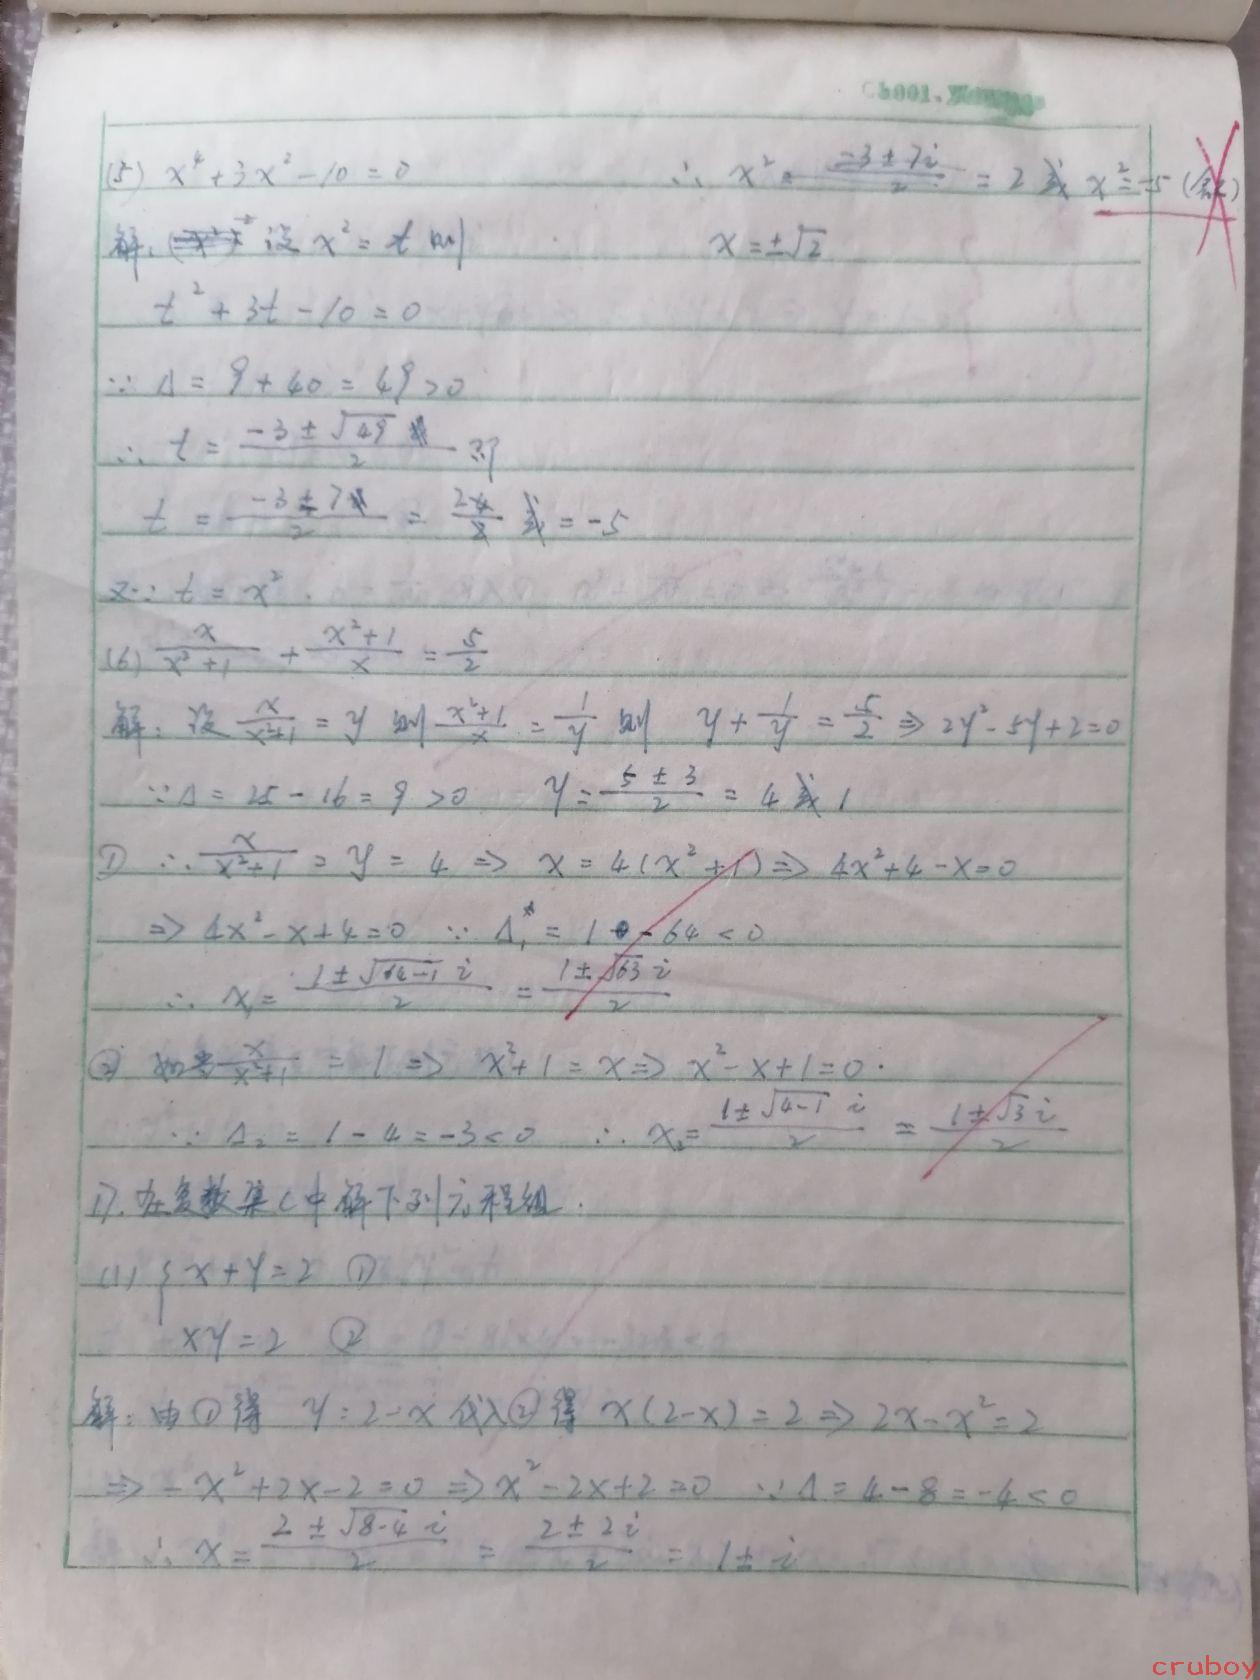 Cb001.
(5) x⁴+3x²-10=0 ∴ x²= (-3±7i)/2 = 2 或 x²=-5 (舍去)
解: 设 x²=t 则 x=±√2
t²+3t-10=0
∵ Δ=9+40=49>0
∴ t= (-3±√49)/2 即
t = (-3±7)/2 = 2 或 = -5
又∵ t = x².
(6) x/(x²+1) + (x²+1)/x = 5/2
解: 设 x/(x²+1) = y 则 (x²+1)/x = 1/y 则 y + 1/y = 5/2 ⇒ 2y²-5y+2=0
∵Δ=25-16=9>0 y= (5±3)/2 = 4 或 1
① ∴ x/(x²+1) = y = 4 ⇒ x=4(x²+1) ⇒ 4x²+4-x=0
⇒ 4x²-x+4=0 ∵ Δ₁=1-64<0
∴ x₁= (1±√(64-1) i)/2 = (1±√63 i)/2
② 如当 x/(x²+1) = 1 ⇒ x²+1=x ⇒ x²-x+1=0.
∵ Δ₂=1-4=-3<0 ∴ x₂= (1±√(4-1) i)/2 = (1±√3 i)/2
17. 在复数集C中解下列方程组.
(1) { x+y=2 ①
xy=2 ②
解: 由①得 y=2-x 代入②得 x(2-x)=2 ⇒ 2x-x²=2
⇒ -x²+2x-2=0 ⇒ x²-2x+2=0 ∵Δ=4-8=-4<0
∴ x= (2±√(8-4) i)/2 = (2±2i)/2 = 1±i
cruboy